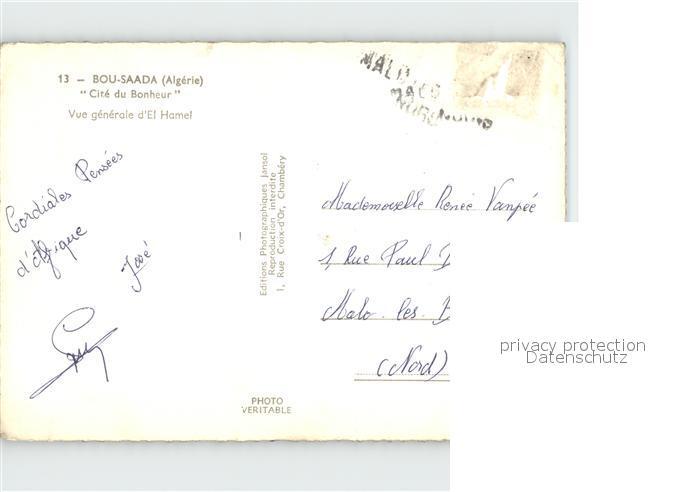 13 — BOU-SAADA (Algérie)
"Cité du Bonheur"
Vue générale d'El Hamel
Cordiales Pensées
d'Afrique
José
Editions Photographiques Jansol
Reproduction interdite
1, Rue Croix-d'Or, Chambéry
PHOTO
VERITABLE
Mademoiselle Renée Vanpée
1, Rue Paul
Malo-les-
(Nord)
privacy protection
Datenschutz